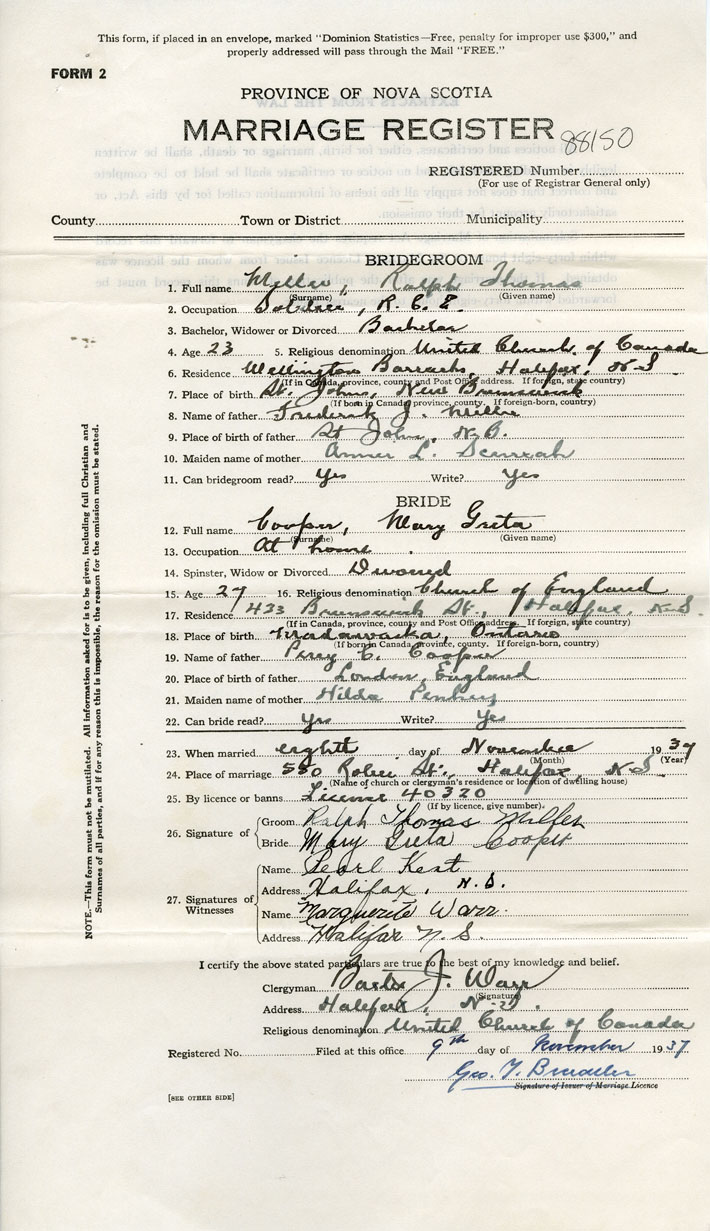 This form, if placed in an envelope, marked "Dominion Statistics—Free, penalty for improper use $300," and
properly addressed will pass through the Mail "FREE."
FORM 2
PROVINCE OF NOVA SCOTIA
MARRIAGE REGISTER 88150
REGISTERED Number
(For use of Registrar General only)
County Town or District Municipality
BRIDEGROOM
1. Full name Miller, Ralph Thomas
(Surname) (Given name)
2. Occupation Soldier, R.C.E.
3. Bachelor, Widower or Divorced Bachelor
4. Age 23 5. Religious denomination United Church of Canada
6. Residence Wellington Barracks, Halifax, N.S.
(If in Canada, province, county and Post Office address. If foreign, state country)
7. Place of birth St. Johns, New Brunswick
(If born in Canada, province, county. If foreign-born, country)
8. Name of father Frederick J. Miller
9. Place of birth of father St John, N.B.
10. Maiden name of mother L.
11. Can bridegroom read? Yes Write? Yes
BRIDE
12. Full name Cooper, Mary Greta
(Surname) (Given name)
13. Occupation At home
14. Spinster, Widow or Divorced Divorced
15. Age 27 16. Religious denomination Church of England
17. Residence 433 Brunswick St., Halifax, N.S.
(If in Canada, province, county and Post Office address. If foreign, state country)
18. Place of birth Madawaska, Ontario
(If born in Canada, province, county. If foreign-born, country)
19. Name of father Percy C. Cooper
20. Place of birth of father London, England
21. Maiden name of mother Hilda
22. Can bride read? Yes Write? Yes
23. When married eighth day of November 1937
(Month) (Year)
24. Place of marriage 550 Robie St., Halifax, N.S.
(Name of church or clergyman's residence or location of dwelling house)
25. By licence or banns License 40320
(If by licence, give number)
26. Signature of
Groom Ralph Thomas Miller
Bride Mary Greta Cooper
27. Signatures of Witnesses
Name Pearl Kent
Address Halifax, N.S.
Name Marguerite Warr
Address Halifax N.S.
I certify the above stated particulars are true to the best of my knowledge and belief.
Clergyman J. Warr
(Signature)
Address Halifax, N.S.
Religious denomination United Church of Canada
Registered No. Filed at this office 9th day of November 1937
Geo. T.
Signature of Issuer of Marriage Licence
[SEE OTHER SIDE]
NOTE.—This form must not be mutilated. All information asked for is to be given, including full Christian and
Surnames of all parties, and if for any reason this is impossible, the reason for the omission must be stated.